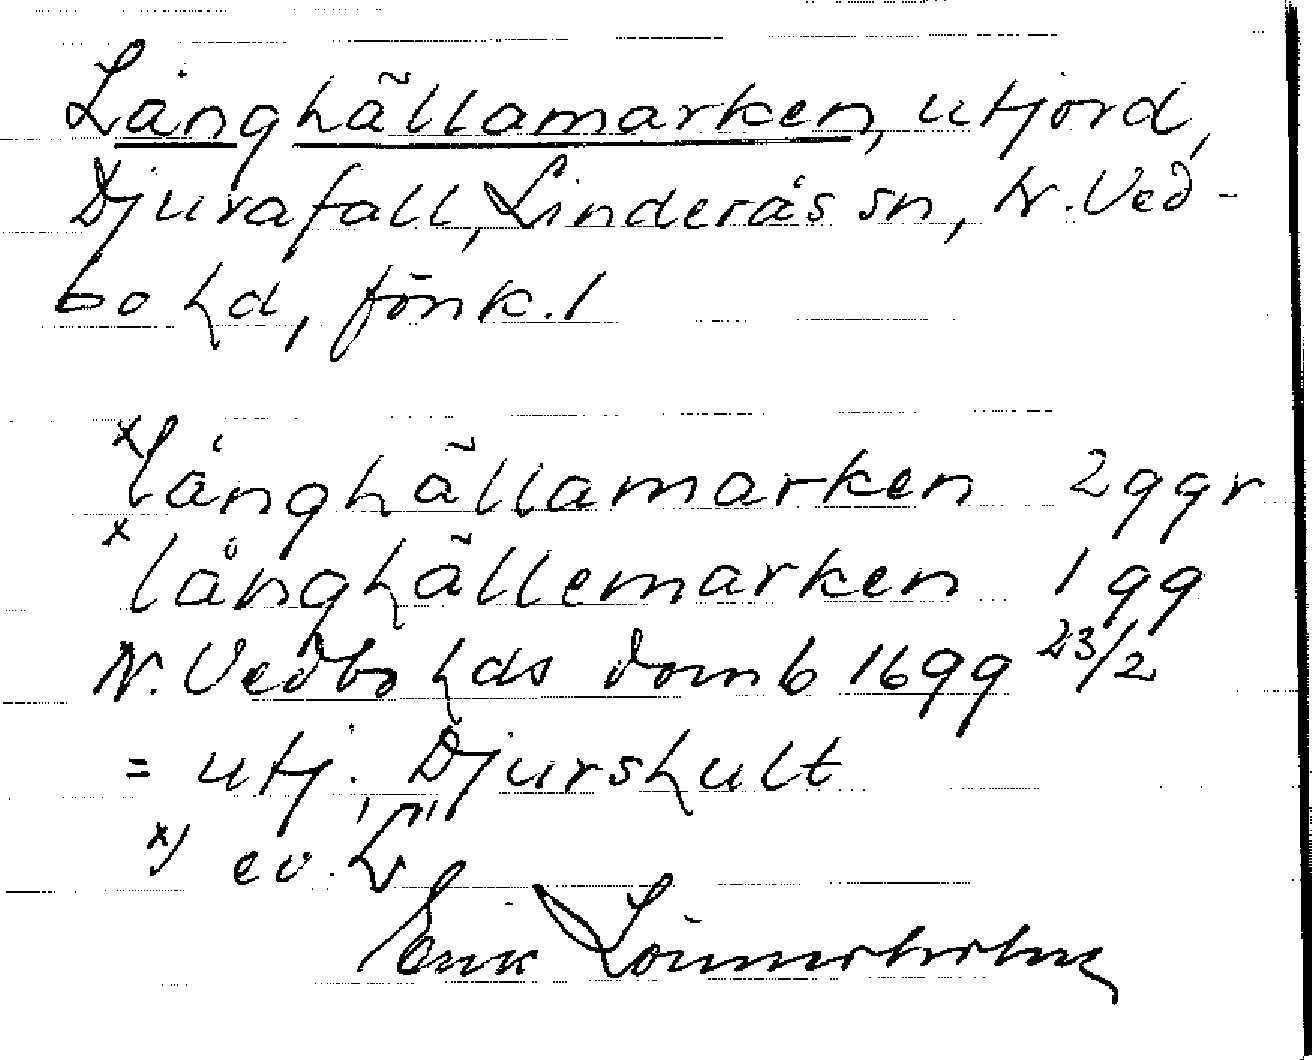 Långhällamarken, utjord,
Djurafall, Linderås sn, N. Ved-
bo hd, Jönk. l
x långhällamarken 2 ggr
x långhällemarken 1 gg
N. Vedbo hds domb 1699 23/2
= utj. Djurshult
x) ev. "L"
Erik Lönnerholm